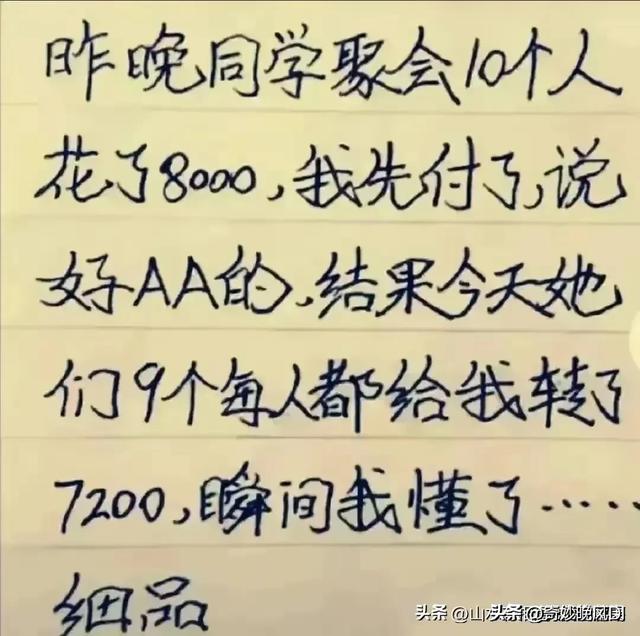 昨晚同学聚会10个人
花了8000,我先付了,说
好AA的,结果今天她
们9个每人都给我转了
7200,瞬间我懂了……
细品
头条 @山
头条 @奇妙晚风